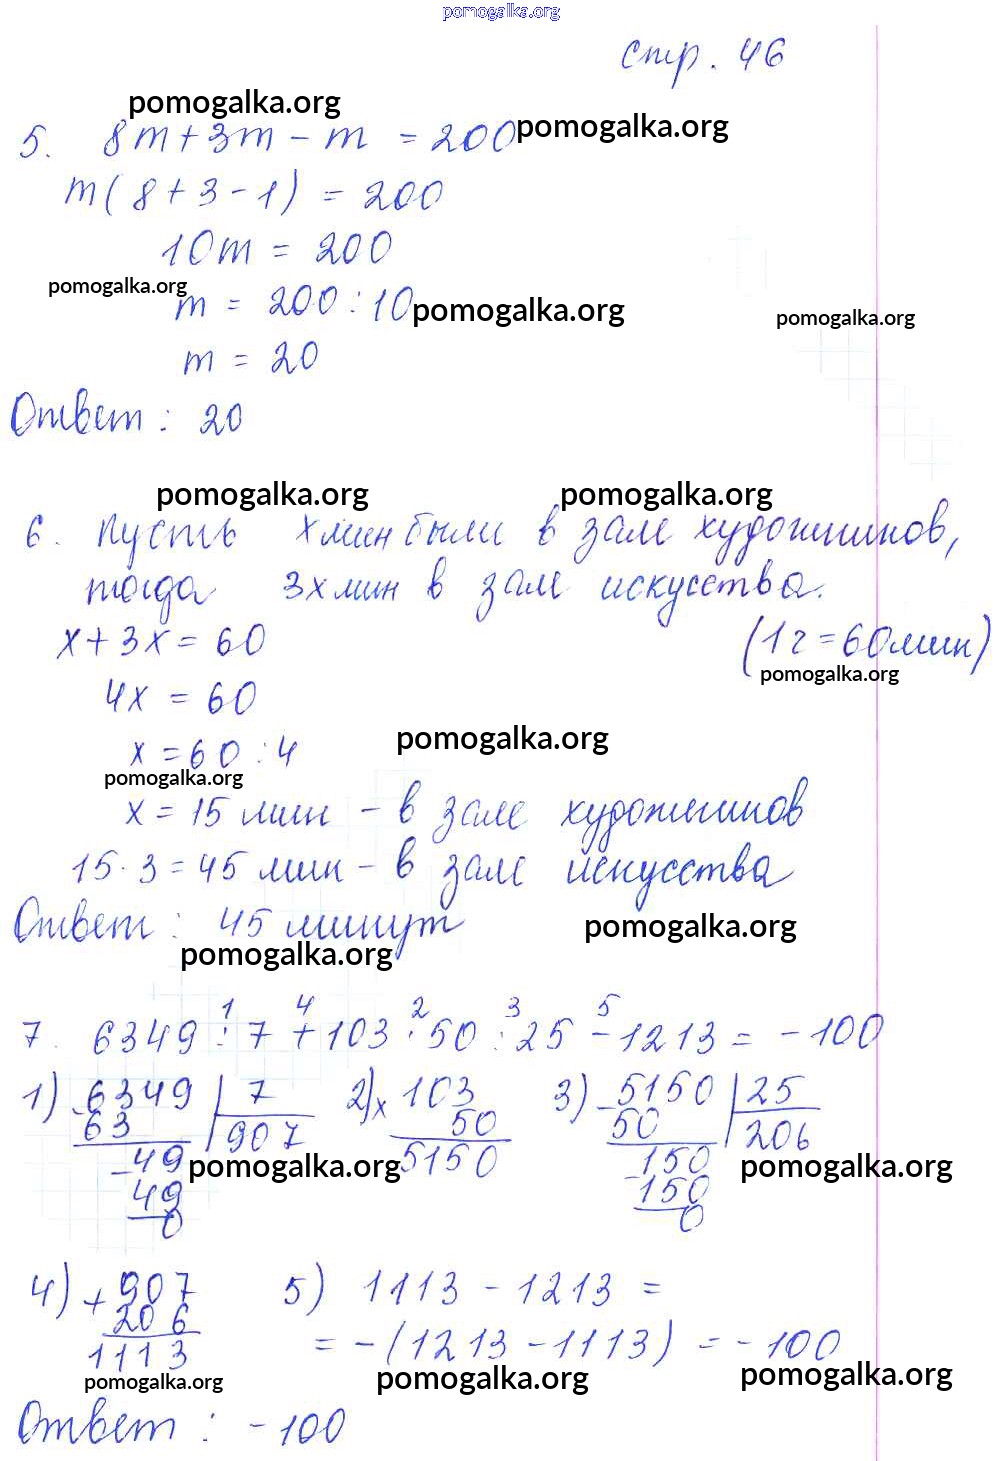 pomogalka.org
стр. 46
pomogalka.org
5. 8m + 3m - m = 200 pomogalka.org
m(8 + 3 - 1) = 200
10m = 200
pomogalka.org
m = 200 : 10 pomogalka.org pomogalka.org
m = 20
Ответ: 20
pomogalka.org pomogalka.org
6. Пусть x мин были в зале художников,
тогда 3x мин в зале искусства.
x + 3x = 60 (1 г = 60 мин)
pomogalka.org
4x = 60
pomogalka.org
x = 60 : 4
pomogalka.org
x = 15 мин - в зале художников
15 · 3 = 45 мин - в зале искусства
Ответ: 45 минут pomogalka.org
pomogalka.org
1 4 2 3 5
7. 6349 : 7 + 103 · 50 : 25 - 1213 = -100
1) 6349 | 7 2) x 103 3) 5150 | 25
- 63 907 50 - 50 206
- 49 pomogalka.org 5150 - 150 pomogalka.org
49 150
0 0
4) + 907 5) 1113 - 1213 =
206 = -(1213 - 1113) = -100
1113
pomogalka.org pomogalka.org pomogalka.org
Ответ: -100